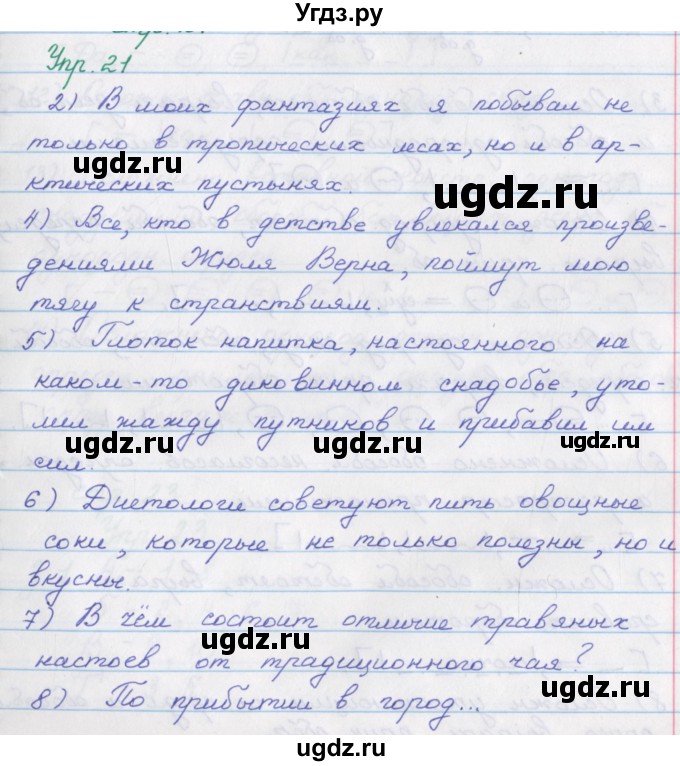 Угдз.ру
Упр. 21
2) В моих фантазиях я побывал не
только в тропических лесах, но и в ар-
ктических пустынях.
4) Все, кто в детстве увлекался произве-
дениями Жюля Верна, поймут мою
тягу к странствиям.
5) Глоток напитка, настоянного на
каком-то диковинном снадобье, уто-
лил жажду путников и прибавил им
сил.
6) Диетологи советуют пить овощные
соки, которые не только полезны, но и
вкусны.
7) В чём состоит отличие травяных
настоев от традиционного чая?
8) По прибытии в город...
ugdz.ru
ugdz.ru
ugdz.ru
ugdz.ru
ugdz.ru
ugdz.ru
ugdz.ru
ugdz.ru